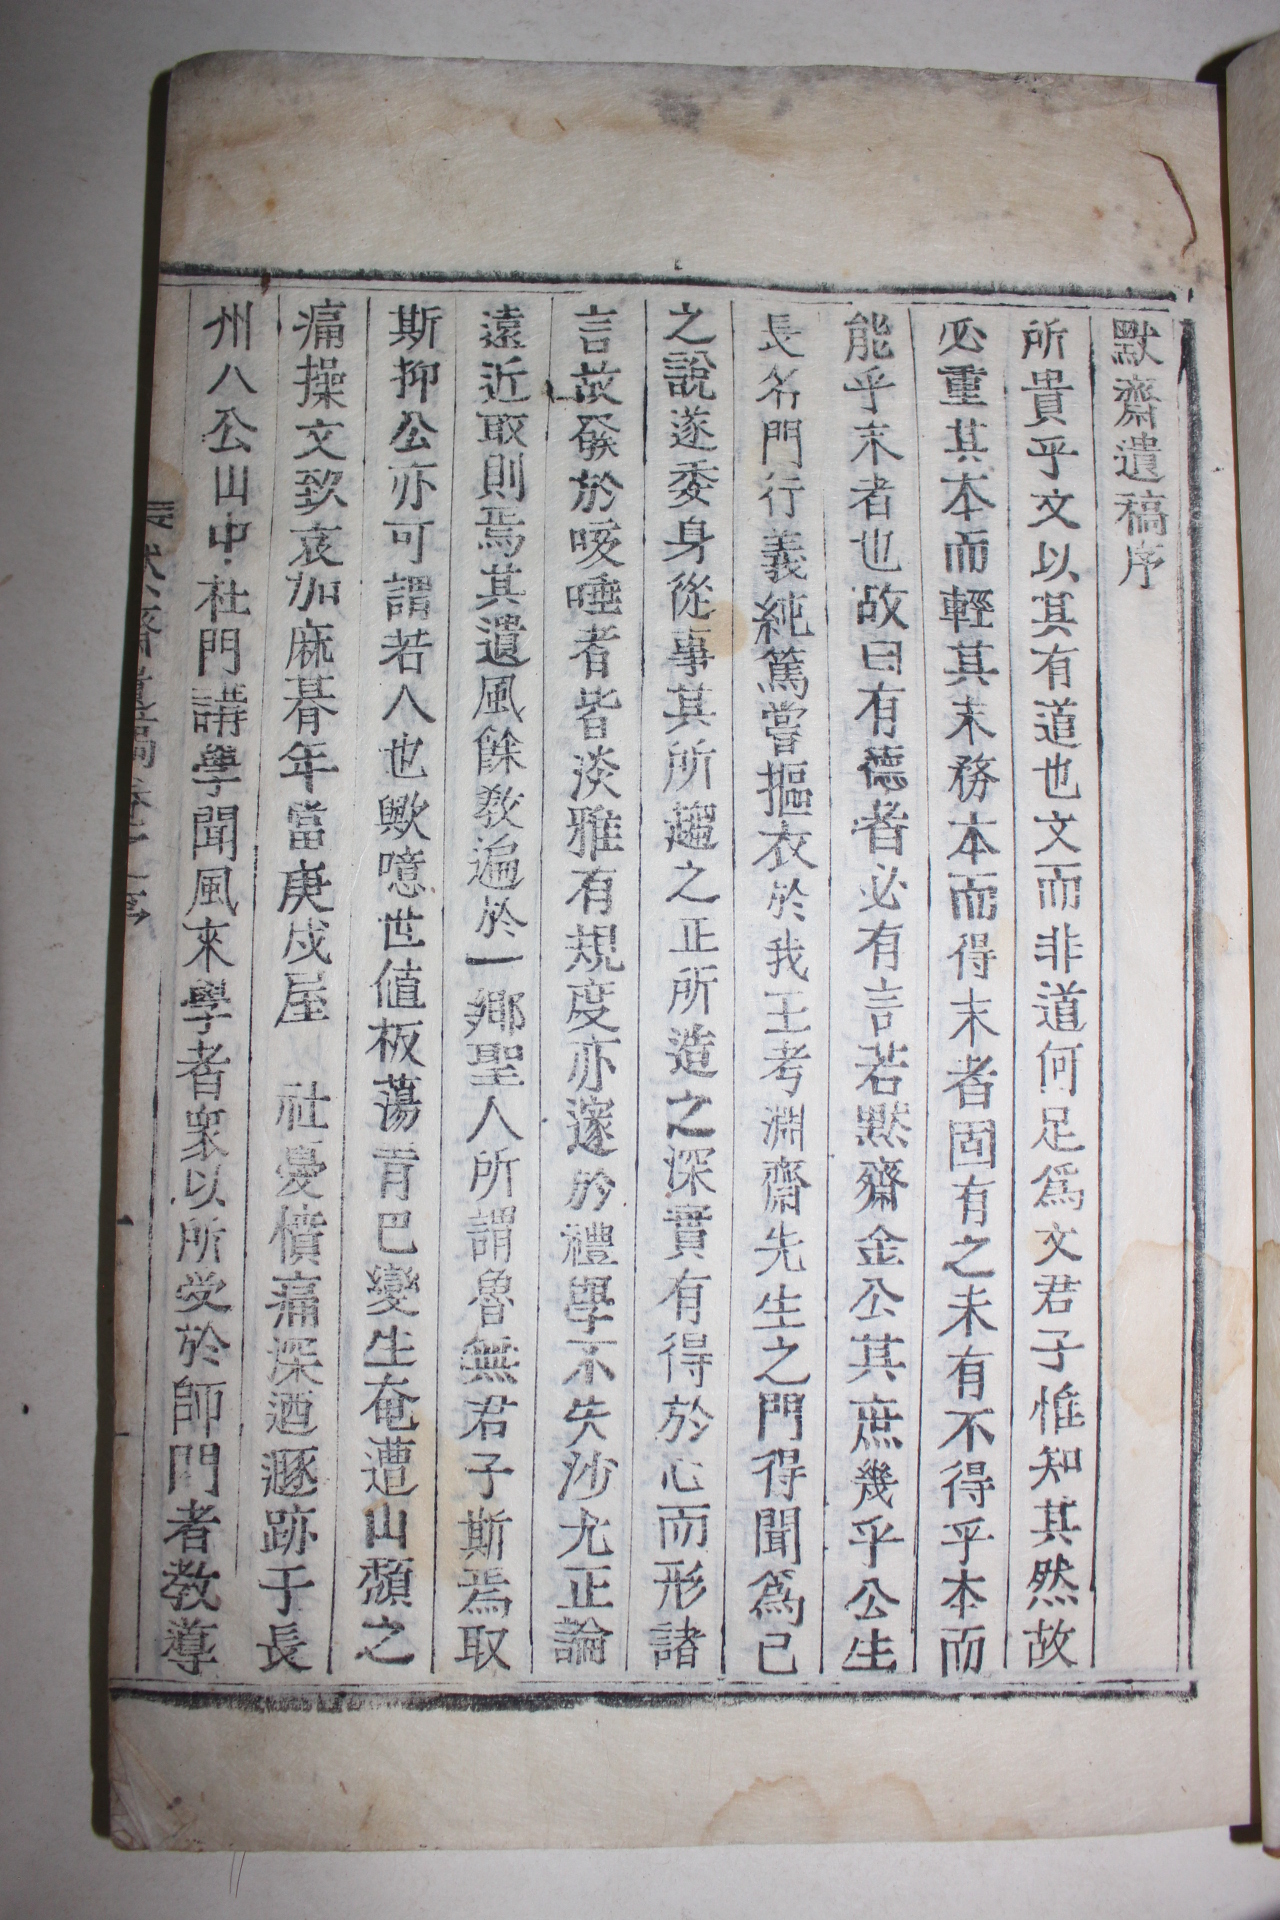 默齋遺稿序
所貴乎文以其有道也文而非道何足爲文君子惟知其然故
必重其本而輕其末務本而得末者固有之未有不得乎本而
能乎末者也故曰有德者必有言若默齋金公其庶幾乎公生
長名門行義純篤嘗摳衣於我王考淵齋先生之門得聞爲己
之說遂委身從事其所趨之正所造之深實有得於心而形諸
言故發於咳唾者皆淡雅有規度亦邃於禮學不失沙尤正論
遠近取則焉其遺風餘敎遍於一鄉聖人所謂魯無君子斯焉取
斯抑公亦可謂若人也歟噫世值板蕩青巴變生奄遭山頹之
痛操文致哀加麻朞年當庚戌屋 社憂憤痛深遁跡于長
州八公山中杜門講學聞風來學者衆以所受於師門者教導